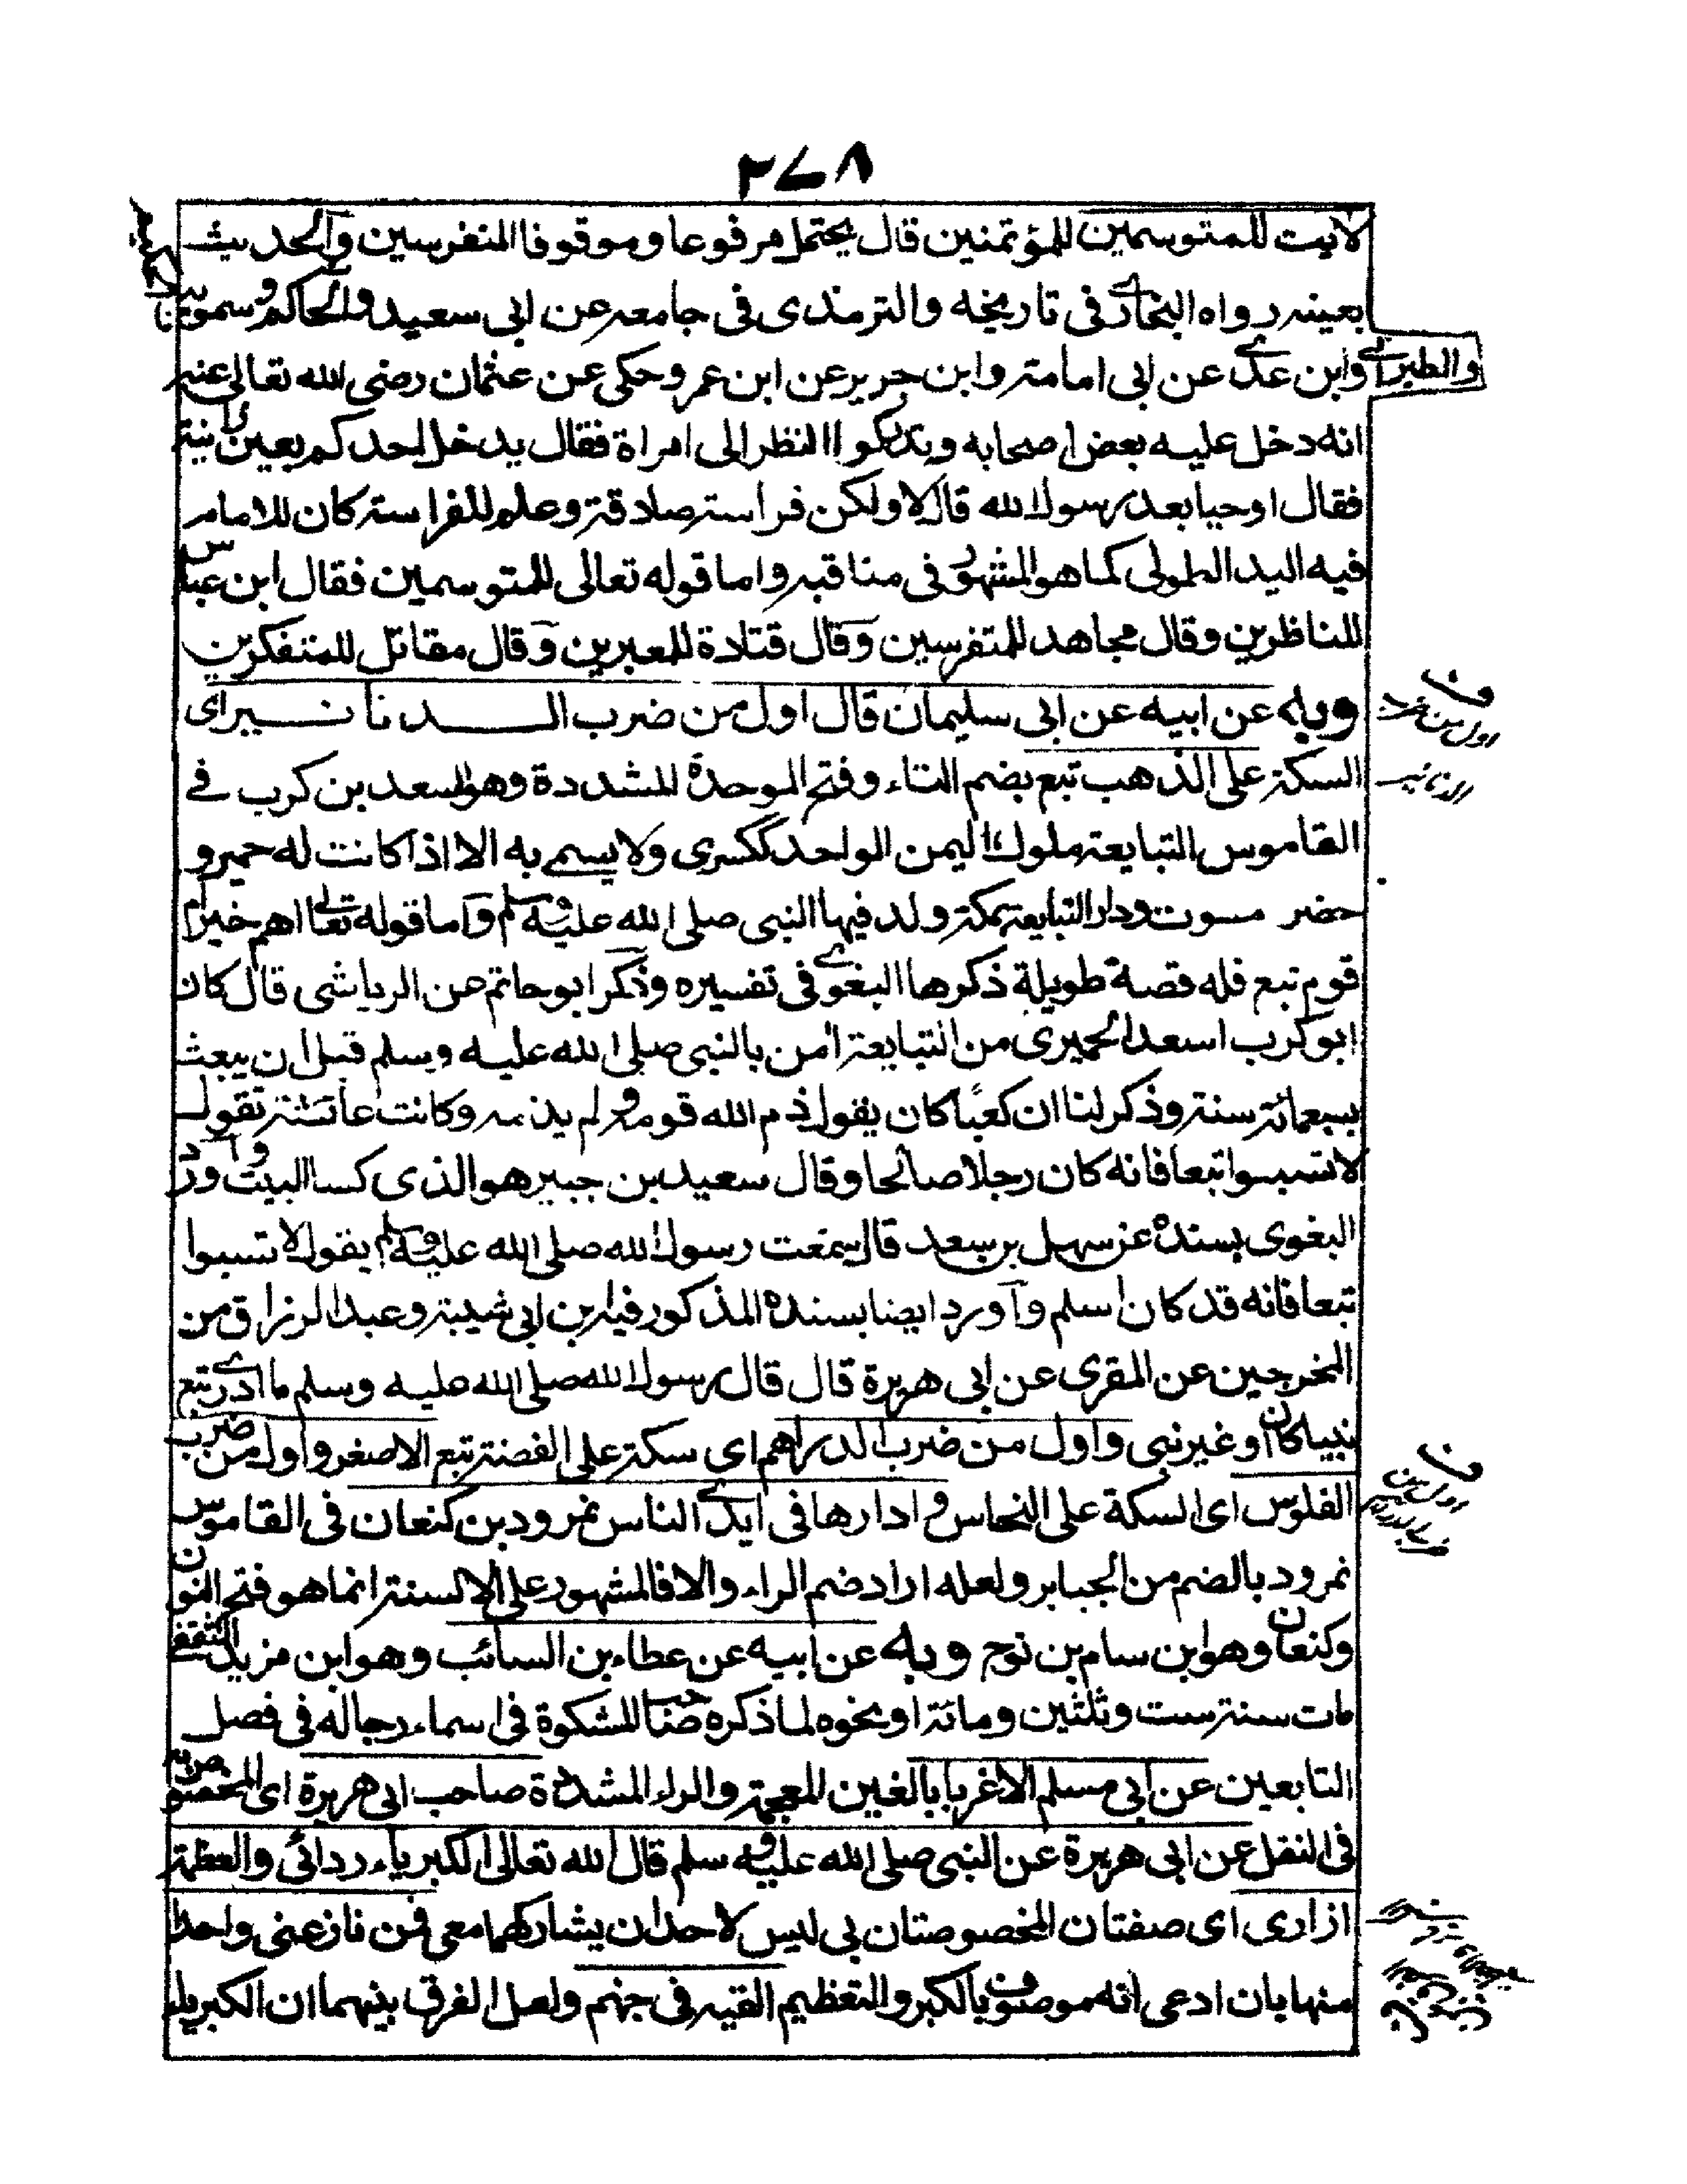 ٢٧٨
لايت للمتوسمين للمؤتمنين قال يحتمل مرفوعا وموقوفا المتفرسين والحديث
بعينه رواه البخاري في تاريخه والترمذى فى جامعه عن ابى سعيد والحاكم وسمويه
والطبراني وابن عدي عن ابى امامة وابن جرير عن ابن عمر وحكى عن عثمان رضى الله تعالى عنه
انه دخل عليه بعض اصحابه النظر الى امراة فقال يدخل احدكم بعين زانية
فقال اوحيا بعد رسول الله قال لا ولكن فراسة صادقة وعلم للفراسة كان للامام
فيه اليد الطولى كما هو المشهور فى مناقبه واما قوله تعالى للمتوسمين فقال ابن عباس
للناظرين وقال مجاهد للمتفرسين وقال قتادة للمعبرين وقال مقاتل للمتفكرين
وبه عن ابيه عن ابى سليمان قال اول من ضرب الدنانير اى
السكة على الذهب تبع بضم التاء وفتح الموحدة المشددة وهو اسعد بن كرب فى
القاموس التبايعة ملوك اليمن الواحد ككسرى ولا يسمى به الا اذا كانت له حمير و
حضر موت ودار التبايعة بمكة ولد فيها النبى صلى الله عليه وسلم واما قوله تعالى اهم خير ام
قوم تبع فله قصة طويلة ذكرها البغوي فى تفسيره وذكر ابو حاتم عن الرياشى قال كان
ابو كرب اسعد الحميرى من التبايعة امن بالنبى صلى الله عليه وسلم قبل ان يبعث
بسبعمائة سنة وذكر لنا ان كعبا كان يقول ذم الله قومه ولم يذمه وكانت عائشة تقول
لا تسبوا تبعا فانه كان رجلا صالحا وقال سعيد بن جبير هو الذى كسا البيت واورد
البغوى بسنده عن سهل بن سعد قال سمعت رسول الله صلى الله عليه وسلم يقول لا تسبوا
تبعا فانه قد كان اسلم واورد ايضا بسنده المذكور فيه ابن ابى شيبة وعبد الرزاق من
المخرجين عن المقرى عن ابى هريرة قال قال رسول الله صلى الله عليه وسلم ما ادري تبع
نبيا كان او غير نبى واول من ضرب الدراهم اى سكة على الفضة تبع الاصغر واول من ضرب
الفلوس اى السكة على النحاس وادارها فى ايدي الناس نمرود بن كنعان فى القاموس
نمرود بالضم من الجبابر ولعله اراد ضم الراء والا فالمشهور على الالسنة انما هو فتح النون
وكنعان وهو ابن سام بن نوح وبه عن ابيه عن عطاء بن السائب وهو ابن مزيد الثقفى
مات سنة ست وثلثين ومائة او نحوه لما ذكره صاحب المشكوة فى اسماء رجاله فى فصل
التابعين عن ابى مسلم الاغر بابا بالغين المعجمة والراء المشددة صاحب ابى هريرة اى المخصوص به
فى النقل عن ابى هريرة عن النبى صلى الله عليه وسلم قال الله تعالى الكبرياء ردائى والعظمة
ازارى اى صفتان المخصوصتان بى ليس لاحد ان يشاركهما معى فمن نازعنى واحدا
منها بان ادعى انه موصوف بالكبر والتعظيم القيه فى جهنم ولعل الفرق بينهما ان الكبرياء
اول من ضرب
الدنانير